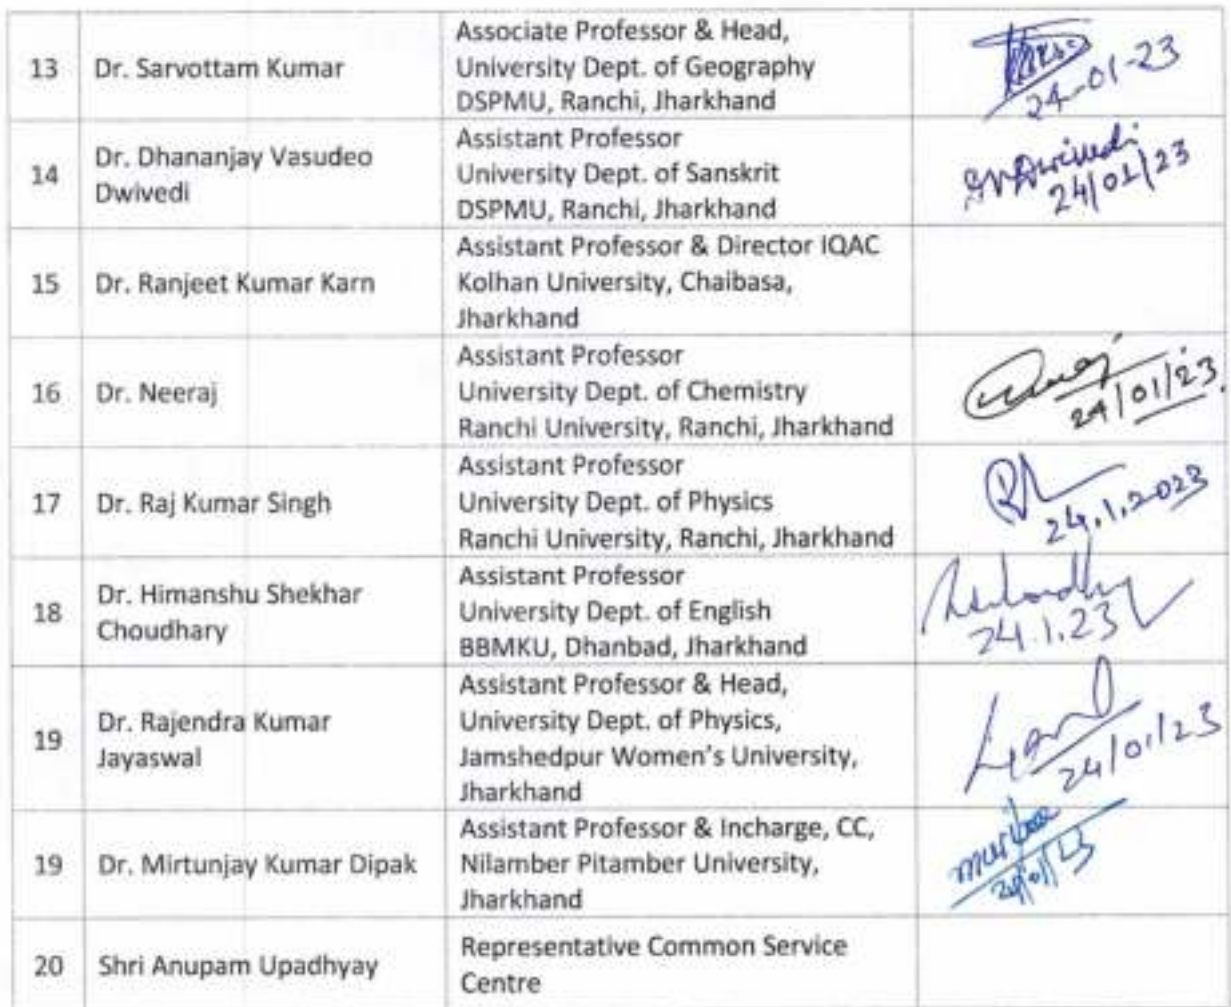 13
Dr. Sarvottam Kumar
Associate Professor & Head,
University Dept. of Geography
DSPMU, Ranchi, Jharkhand
24-01-23
14
Dr. Dhananjay Vasudeo
Dwivedi
Assistant Professor
University Dept. of Sanskrit
DSPMU, Ranchi, Jharkhand
DVDwivedi
24/01/23
15
Dr. Ranjeet Kumar Karn
Assistant Professor & Director IQAC
Kolhan University, Chaibasa,
Jharkhand
16
Dr. Neeraj
Assistant Professor
University Dept. of Chemistry
Ranchi University, Ranchi, Jharkhand
24/01/23
17
Dr. Raj Kumar Singh
Assistant Professor
University Dept. of Physics
Ranchi University, Ranchi, Jharkhand
24.1.2023
18
Dr. Himanshu Shekhar
Choudhary
Assistant Professor
University Dept. of English
BBMKU, Dhanbad, Jharkhand
24.1.23
19
Dr. Rajendra Kumar
Jayaswal
Assistant Professor & Head,
University Dept. of Physics,
Jamshedpur Women's University,
Jharkhand
24/01/23
19
Dr. Mirtunjay Kumar Dipak
Assistant Professor & Incharge, CC,
Nilamber Pitamber University,
Jharkhand
24/01/23
20
Shri Anupam Upadhyay
Representative Common Service
Centre